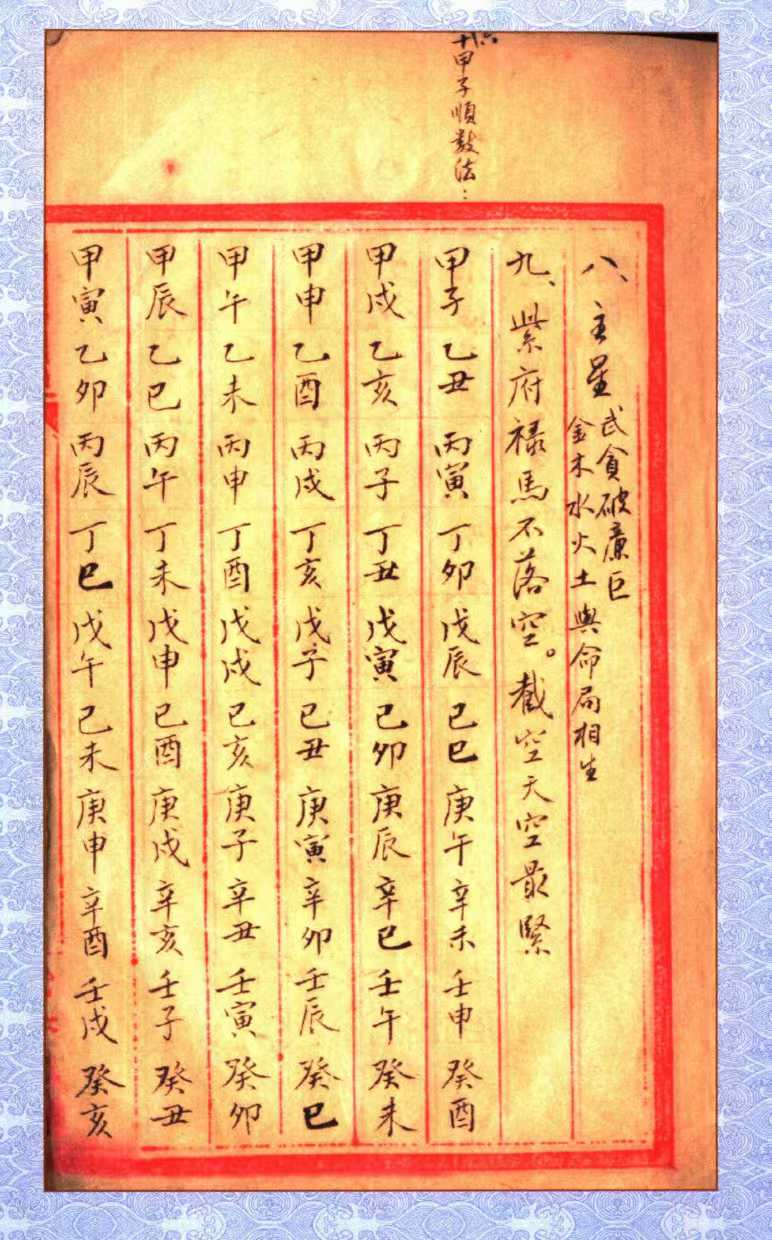 六十甲子順数法：
八、主星
武貪破廉巨
金木水火土與命局相生
九、紫府祿馬不落空。截空天空最緊
甲子乙丑丙寅丁卯戊辰己巳庚午辛未壬申癸酉
甲戌乙亥丙子丁丑戊寅己卯庚辰辛巳壬午癸未
甲申乙酉丙戌丁亥戊子己丑庚寅辛卯壬辰癸巳
甲午乙未丙申丁酉戊戌己亥庚子辛丑壬寅癸卯
甲辰乙巳丙午丁未戊申己酉庚戌辛亥壬子癸丑
甲寅乙卯丙辰丁巳戊午己未庚申辛酉壬戌癸亥